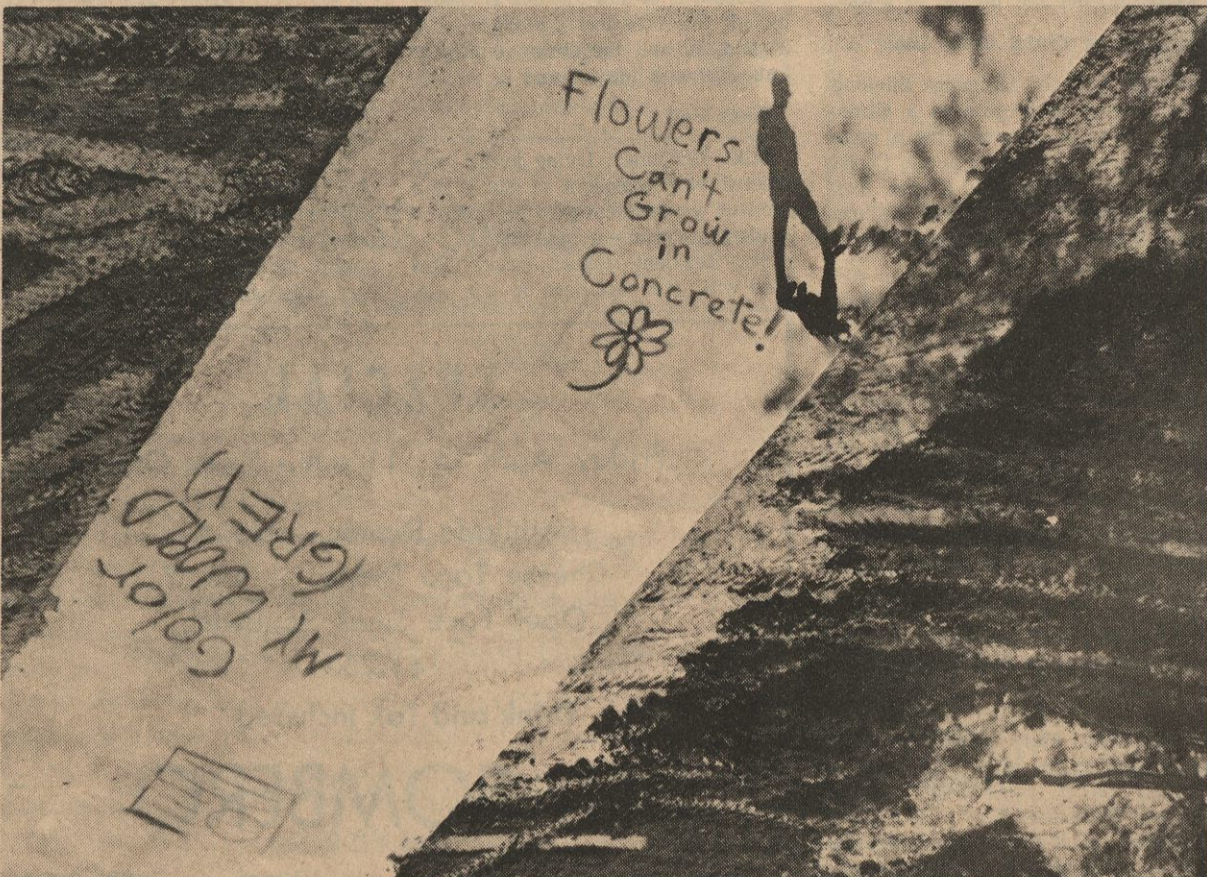 Flowers
Can't
Grow
in
Concrete!
Color
MY WORLD
(GREY)